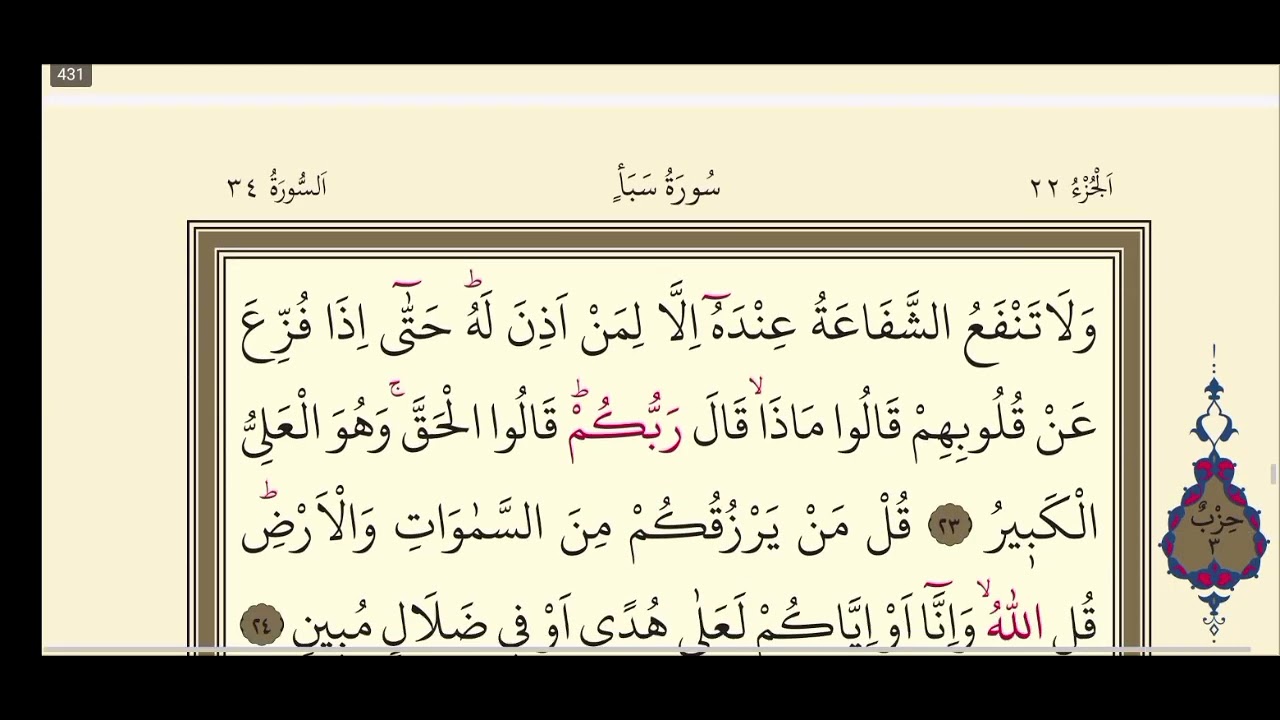 431
اَلْجُزْءُ ٢٢ سُورَةُ سَبَأٍ اَلسُّورَةُ ٣٤
وَلَا تَنْفَعُ الشَّفَاعَةُ عِنْدَهُٓ اِلَّا لِمَنْ اَذِنَ لَهُۜ حَتّٰٓى اِذَا فُزِّعَ
عَنْ قُلُوبِهِمْ قَالُوا مَاذَاۙ قَالَ رَبُّكُمْۜ قَالُوا الْحَقَّۚ وَهُوَ الْعَلِيُّ
الْكَب۪يرُ ٢٣ قُلْ مَنْ يَرْزُقُكُمْ مِنَ السَّمٰوَاتِ وَالْاَرْضِۜ
قُلِ اللّٰهُۙ وَاِنَّٓا اَوْ اِيَّاكُمْ لَعَلٰى هُدًى اَوْ ف۪ي ضَلَالٍ مُب۪ينٍ ٢٤
حِزْبٌ
٣